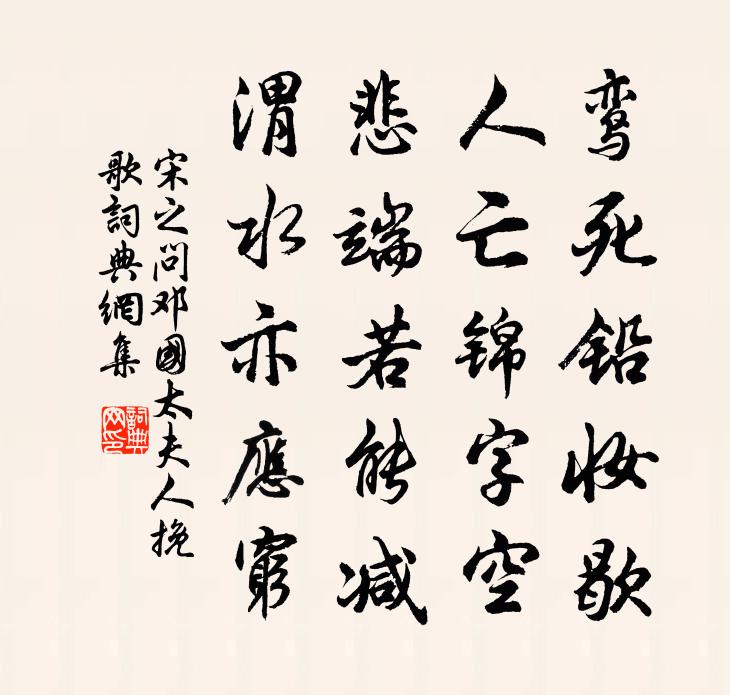 鸾死铅妆歇
人亡锦字空
悲端若能减
渭水亦應窮
宋之问邓國太夫人挽
歌詞典網集
詞典网印